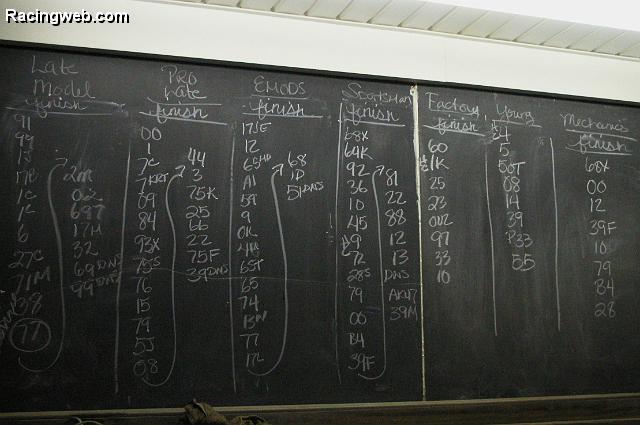 Racingweb.com
Late
Model
finish
91
99
6
27C
71M
38
77
2m
02
697
17M
32
69 DNS
99 DNS
PRO
Late
finish
00
1
7C
7KRT
09
84
93X
75S
76
15
79
5J
08
44
3
75K
25
66
22
75F
39 DNS
EMODS
finish
12
65
A1
59
9
0K
65T
65
74
77
68
1D
51 DNS
Sportsman
finish
68X
64K
92
36
10
45
9
72
28S
79
00
B4
39F
81
22
88
12
13
DNS
AK47
39M
Factory
finish
60
1K
25
23
97
33
10
Young
4
5
08
14
39
P33
55
Mechanics
finish
68X
00
12
39F
10
79
B4
28